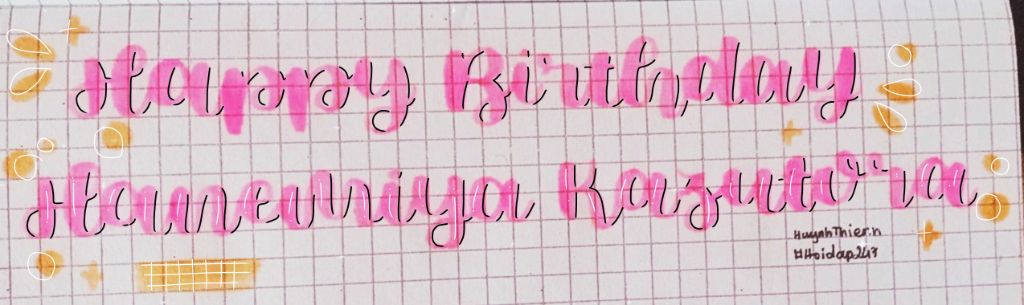 Happy Birthday
Hanemiya Kazutora
HuynhThier.n
#Hoidap247